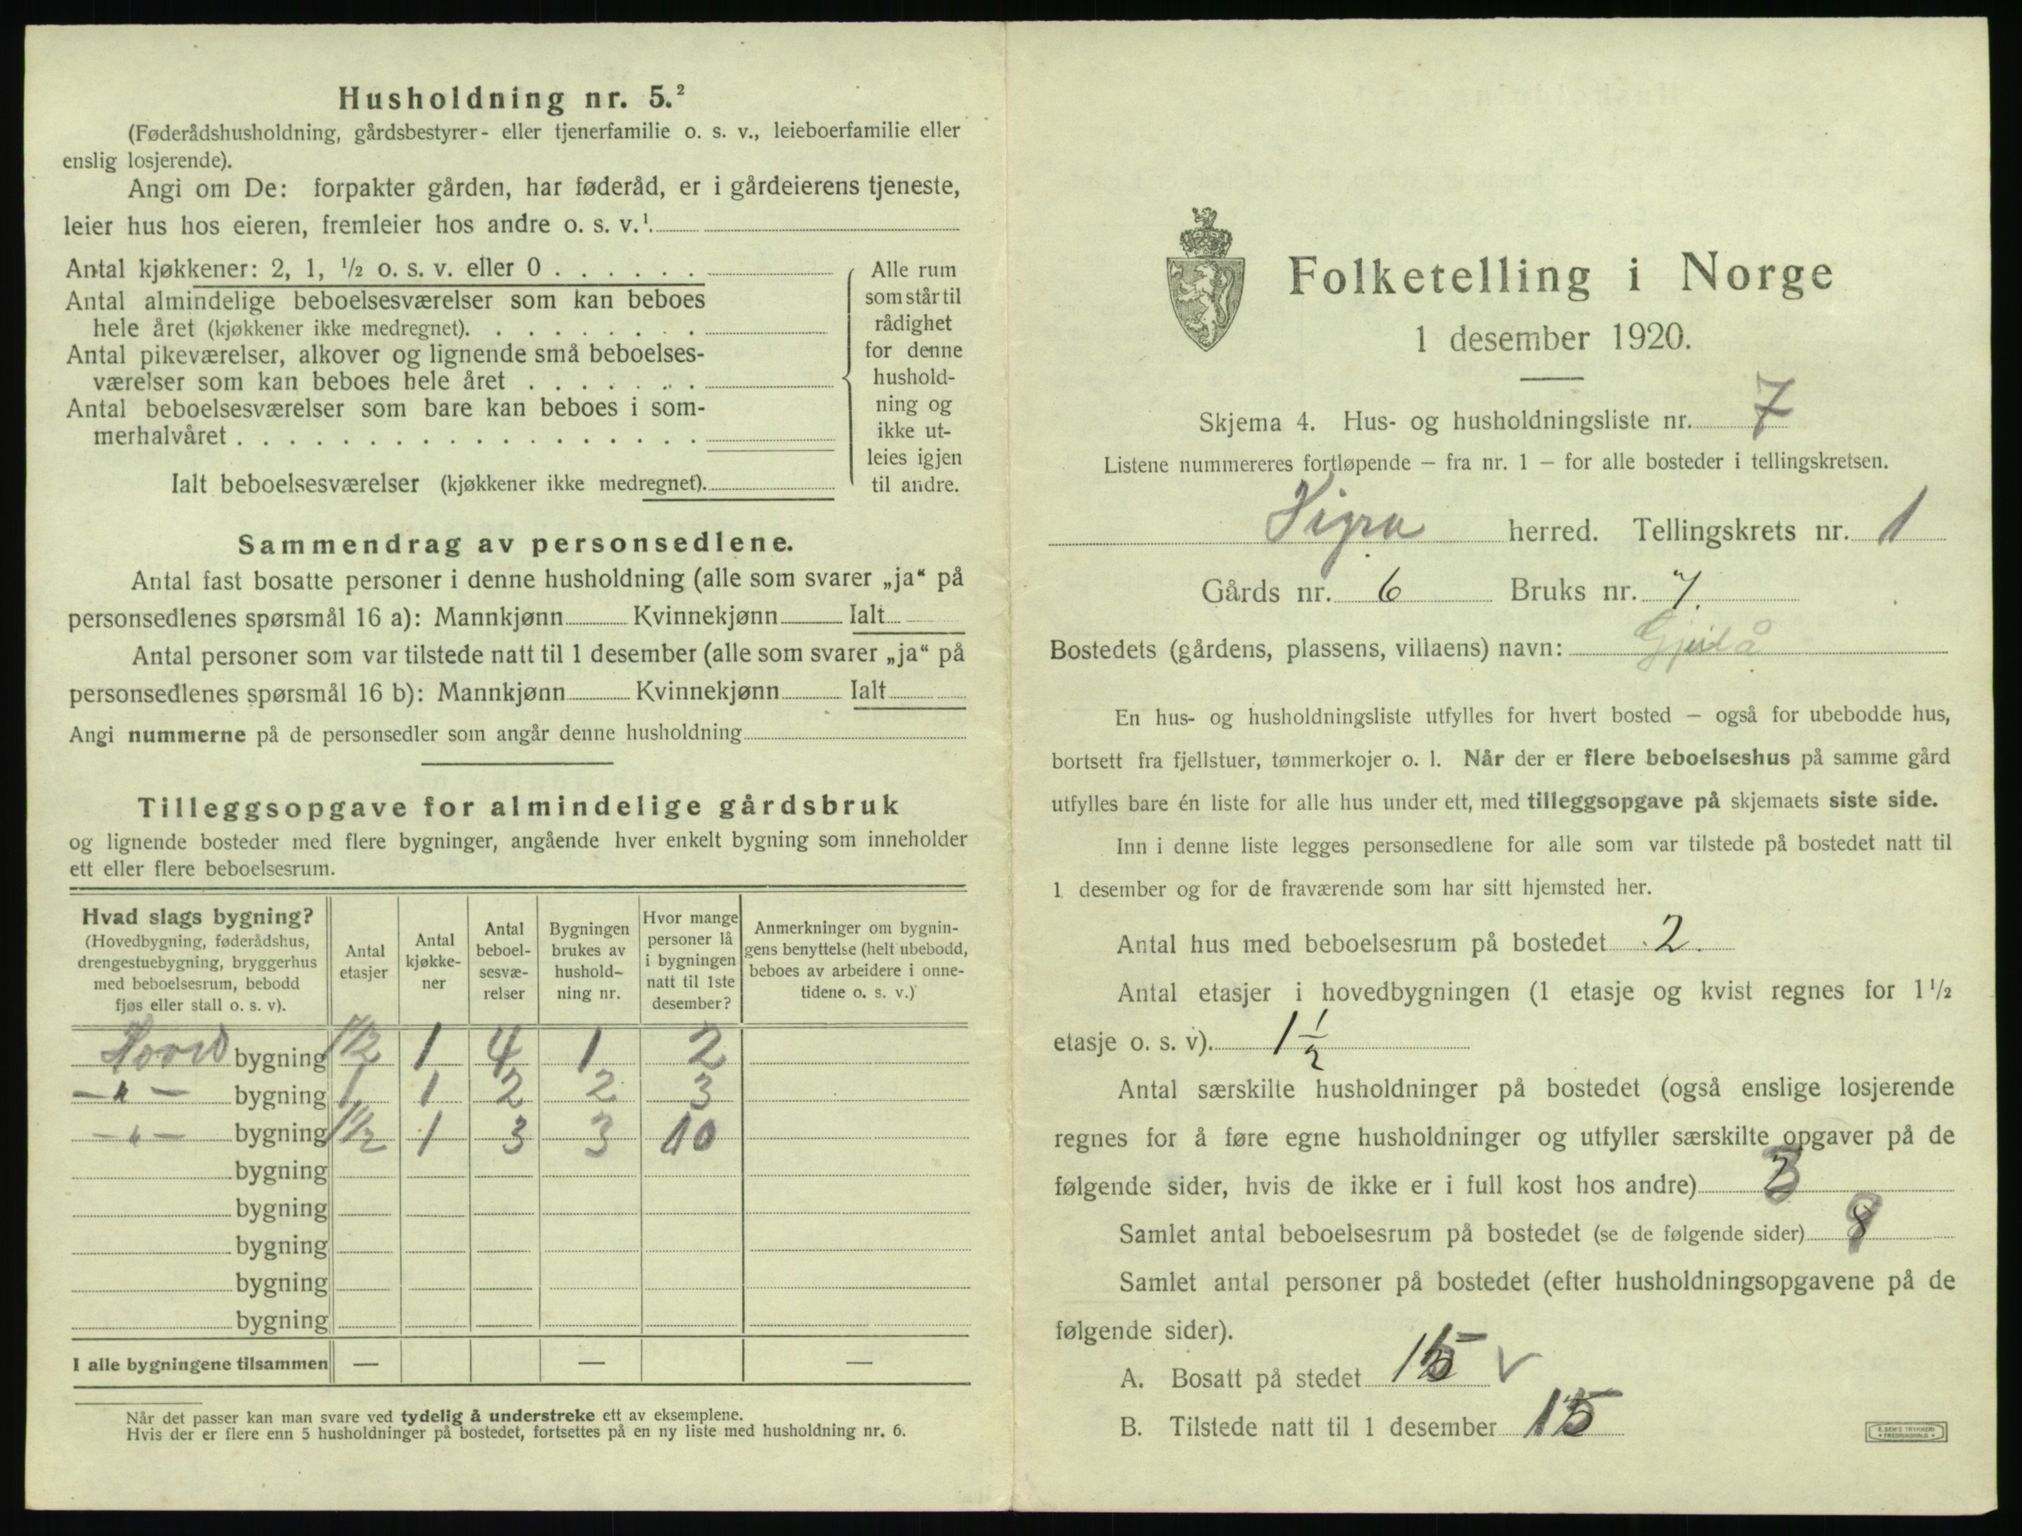 Husholdning nr. 5.²
(Føderådshusholdning, gårdsbestyrer- eller tjenerfamilie o. s. v., leieboerfamilie eller
enslig losjerende).
Angi om De: forpakter gården, har føderåd, er i gårdeierens tjeneste,
leier hus hos eieren, fremleier hos andre o. s. v.¹
Antal kjøkkener: 2, 1, ½ o. s. v. eller 0 . . . . . .
Antal almindelige beboelsesværelser som kan beboes
hele året (kjøkkener ikke medregnet). . . . . . . . .
Antal pikeværelser, alkover og lignende små beboelses-
værelser som kan beboes hele året . . . . . . .
Antal beboelsesværelser som bare kan beboes i som-
merhalvåret . . . . . . . . . . . . . . . . . .
Ialt beboelsesværelser (kjøkkener ikke medregnet).
Alle rum
som står til
rådighet
for denne
hushold-
ning og
ikke ut-
leies igjen
til andre.
Sammendrag av personsedlene.
Antal fast bosatte personer i denne husholdning (alle som svarer „ja“ på
personsedlenes spørsmål 16 a): Mannkjønn Kvinnekjønn Ialt
Antal personer som var tilstede natt til 1 desember (alle som svarer „ja“ på
personsedlenes spørsmål 16 b): Mannkjønn Kvinnekjønn Ialt
Angi nummerne på de personsedler som angår denne husholdning
Tilleggsopgave for almindelige gårdsbruk
og lignende bosteder med flere bygninger, angående hver enkelt bygning som inneholder
ett eller flere beboelsesrum.
Hvad slags bygning?
(Hovedbygning, føderådshus,
drengestuebygning, bryggerhus
med beboelsesrum, bebodd
fjøs eller stall o. s. v).
Antal
etasjer
Antal
kjøkke-
ner
Antal
beboel-
sesvæ-
relser
Bygningen
brukes av
hushold-
ning nr.
Hvor mange
personer lå
i bygningen
natt til 1ste
desember?
Anmerkninger om bygnin-
gens benyttelse (helt ubebodd,
beboes av arbeidere i onne-
tidene o. s. v.)
Hoved bygning 1½ 1 4 1 2
—„— bygning 1 1 2 2 3
—„— bygning 1½ 1 3 3 10
bygning
bygning
bygning
bygning
bygning
I alle bygningene tilsammen — — —
Når det passer kan man svare ved tydelig å understreke ett av eksemplene.
Hvis der er flere enn 5 husholdninger på bostedet, fortsettes på en ny liste med husholdning nr. 6.
Folketelling i Norge
1 desember 1920.
Skjema 4. Hus- og husholdningsliste nr. 7
Listene nummereres fortløpende – fra nr. 1 – for alle bosteder i tellingskretsen.
Vigra herred. Tellingskrets nr. 1
Gårds nr. 6 Bruks nr. 7.
Bostedets (gårdens, plassens, villaens) navn:
En hus- og husholdningsliste utfylles for hvert bosted – også for ubebodde hus,
bortsett fra fjellstuer, tømmerkojer o. l. Når der er flere beboelseshus på samme gård
utfylles bare én liste for alle hus under ett, med tilleggsopgave på skjemaets siste side.
Inn i denne liste legges personsedlene for alle som var tilstede på bostedet natt til
1 desember og for de fraværende som har sitt hjemsted her.
Antal hus med beboelsesrum på bostedet 2.
Antal etasjer i hovedbygningen (1 etasje og kvist regnes for 1½
etasje o. s. v). 1½
Antal særskilte husholdninger på bostedet (også enslige losjerende
regnes for å føre egne husholdninger og utfyller særskilte opgaver på de
følgende sider, hvis de ikke er i full kost hos andre) 3
Samlet antal beboelsesrum på bostedet (se de følgende sider)
Samlet antal personer på bostedet (efter husholdningsopgavene på de
følgende sider).
A. Bosatt på stedet 15 v
B. Tilstede natt til 1 desember 15
E. SEM'S TRYKKERI
• FREDRIKSHALD •